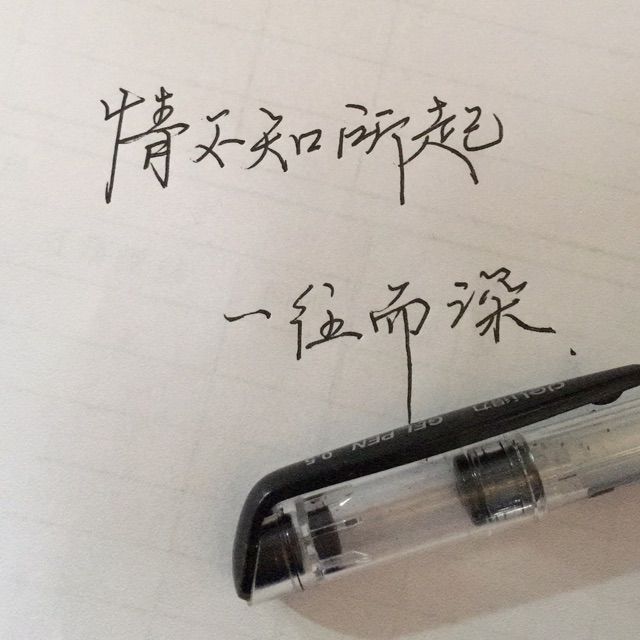 情不知所起
一往而深.
GEL PEN 0.5